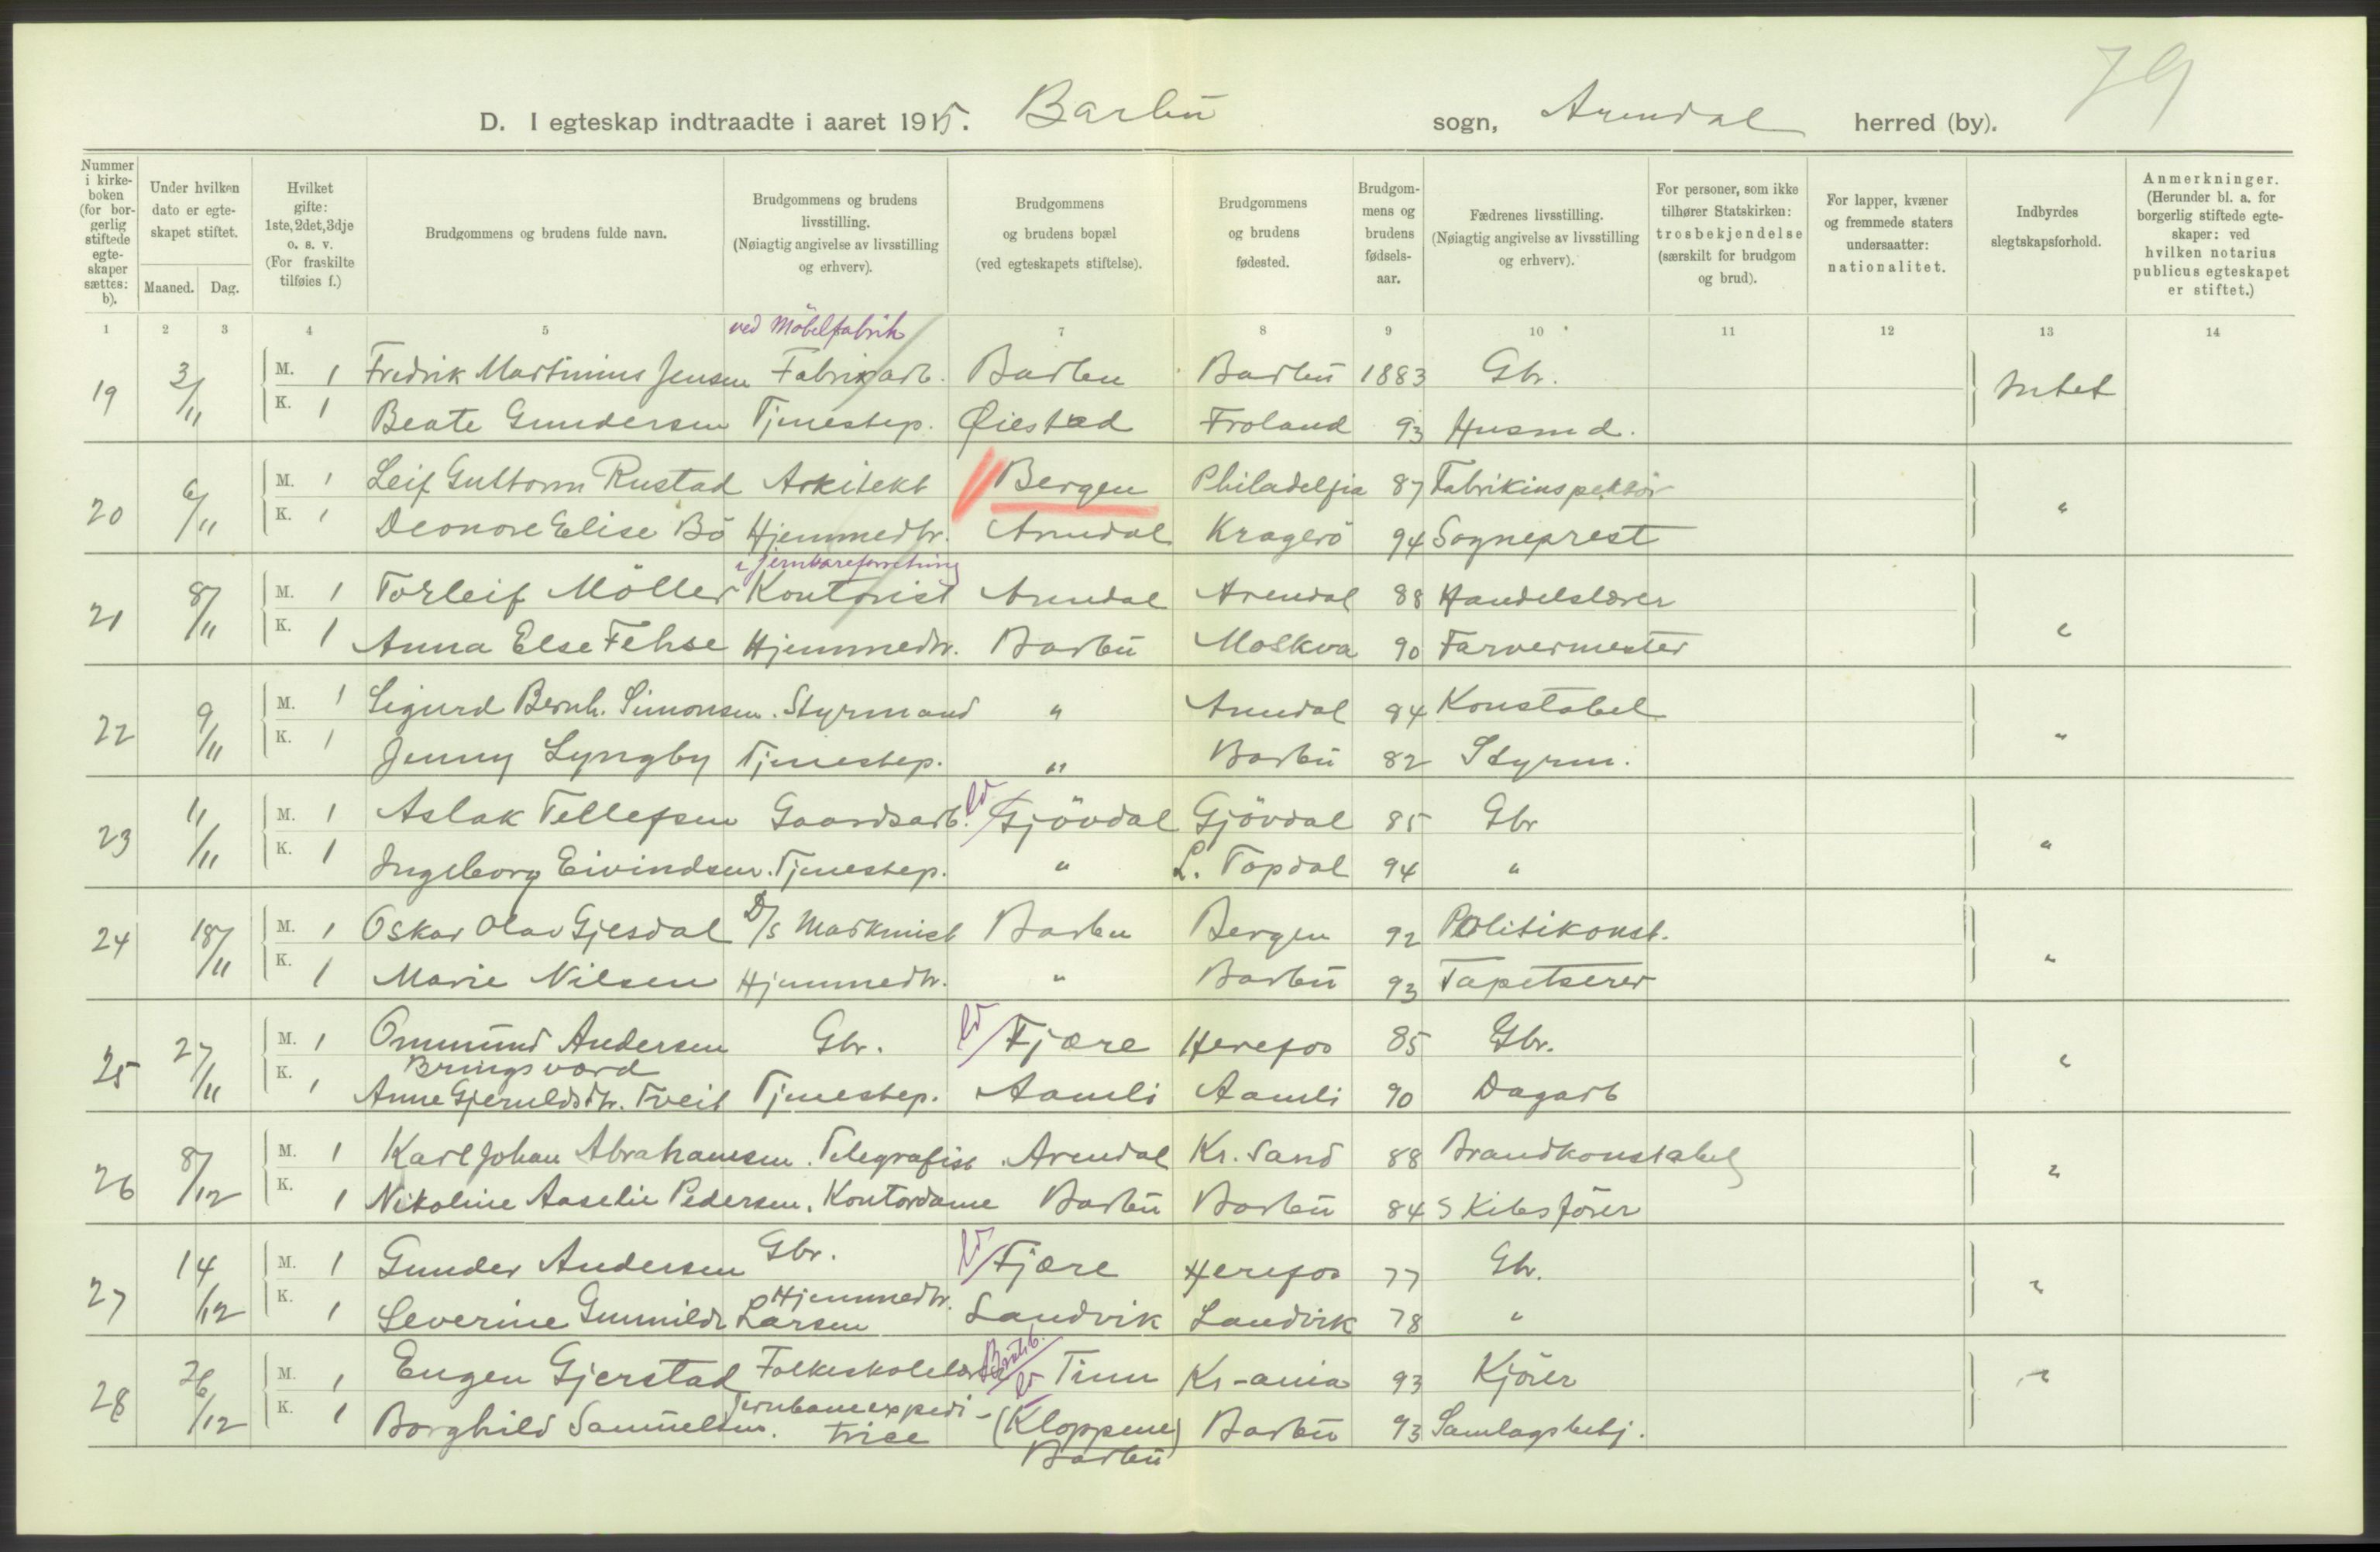 79
D. I egteskap indtraadte i aaret 1915. Barbu sogn, Arendal herred (by).
Nummer i kirke-boken (for bor-gerlig stiftede egte-skaper sættes: b).
Under hvilken dato er egte-skapet stiftet.
Maaned. Dag.
Hvilket gifte: 1ste, 2det, 3dje o. s. v. (For fraskilte tilføies f.)
Brudgommens og brudens fulde navn.
Brudgommens og brudens livsstilling. (Nøiagtig angivelse av livsstilling og erhverv).
Brudgommens og brudens bopæl (ved egteskapets stiftelse).
Brudgommens og brudens fødested.
Brudgom-mens og brudens fødsels-aar.
Fædrenes livsstilling. (Nøiagtig angivelse av livsstilling og erhverv).
For personer, som ikke tilhører Statskirken: trosbekjendelse (særskilt for brudgom og brud).
For lapper, kvæner og fremmede staters undersaatter: nationalitet.
Indbyrdes slegtskapsforhold.
Anmerkninger. (Herunder bl. a. for borgerlig stiftede egte-skaper: ved hvilken notarius publicus egteskapet er stiftet.)
1 2 3 4 5 7 8 9 10 11 12 13 14
ved Möbelfabrik
19 3/11 M. 1 Fredrik Martinius Jensen Fabrikarb. Barbu Barbu 1883 Gbr. Intet
K. 1 Beate Gundersen Tjenestep. Øiestad Froland 93 Husmd.
20 6/11 M. 1 Leif Guttorm Rustad Arkitekt Bergen Philadelfia 87 Fabrikinspektör "
K. 1 Deonore Elise Bö Hjemmedtr. Arendal Kragerö 94 Sogneprest
i Jernvareforretning
21 8/11 M. 1 Torleif Möller Kontorist Arendal Arendal 88 Handelslærer "
K. 1 Anna Else Fehse Hjemmedtr. Barbu Moskva 90 Farvermester
22 9/11 M. 1 Sigurd Bernh. Simonsen. Styrmand " Arendal 84 Konstabel "
K. 1 Jenny Lyngby Tjenestep. " Barbu 82 Styrm.
23 11/11 M. 1 Aslak Tellefsen Gaardsarb. ld Gjövdal Gjövdal 85 Gbr "
K. 1 Ingeborg Eivindsen. Tjenestep. " L. Topdal 94 "
24 18/11 M. 1 Oskar Olav Gjesdal D/S Maskinist Barbu Bergen 92 Politikonst. "
K. 1 Marie Nilsen Hjemmedtr. " Barbu 93 Tapetserer
25 27/11 M. 1 Ommund Andersen Gbr. ld Fjære Herefos 85 Gbr. "
Bringsværd
K. 1 Anne Gjeruldsdtr. Tveit Tjenestep. Aamli Aamli 90 Dagarb
26 8/12 M. 1 Karl Johan Abrahamsen. Telegrafist Arendal Kr. Sand 88 Brandkonstabel "
K. 1 Nikoline Aaselie Pedersen. Kontordame Barbu Barbu 84 Skibsförer
27 14/12 M. 1 Gunder Andersen Gbr. ld Fjære Herefos 77 Gbr. "
K. 1 Severine Gunnilde Larsen Hjemmedtr. Landvik Landvik 78 "
28 26/12 M. 1 Eugen Gjerstad Folkeskolelær ld Tinn Kr-ania 93 Kjörer "
K. 1 Borghild Samuelsen. Jernbaneexpedi- (Kloppene) Barbu 93 Samlagsbetj.
trice Barbu